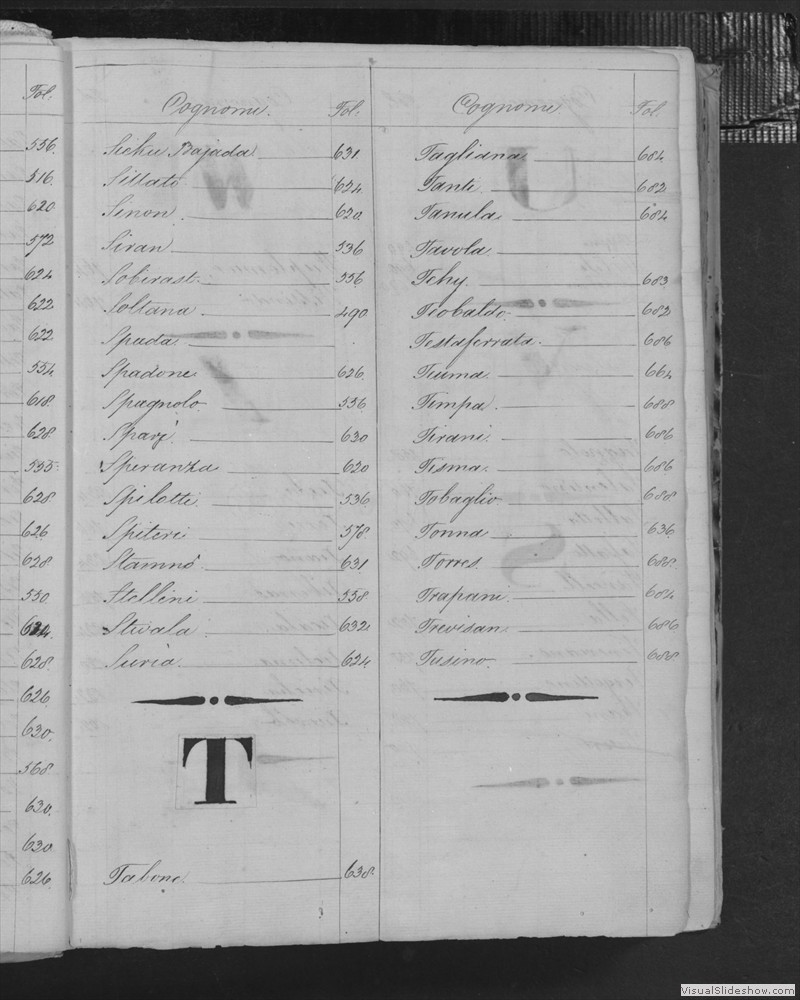 Fol.
536.
516.
620
572
624
622
622
554
618.
628.
535.
628
626
628.
550.
628.
626
630.
568
630.
630
626
Cognomi. Fol.
Sichu Bajada 631
Sillato 624
Sinon 620
Siran 536
Sobirast. 556
Soltana 490
Spada
Spadone 626
Spagnolo 536
Sparj. 630
Speranza 620
Spilotti 536
Spiteri 578
Stamnó 631
Stellini 558
Stivala 632
Suria 624
T
Tabone. 638
Cognomi Fol.
Tagliana 684
Tanti 682
Tanula 684
Tavola
Tchy. 683
Teobaldo. 682
Testaferrata. 686
Teuma 664
Timpa. 688
Tirani. 686
Tisma. 686
Tobaglio 688
Tonna 636
Torres. 688
Trapani. 684
Trevisan 686
Tusino. 688
VisualSlideshow.com